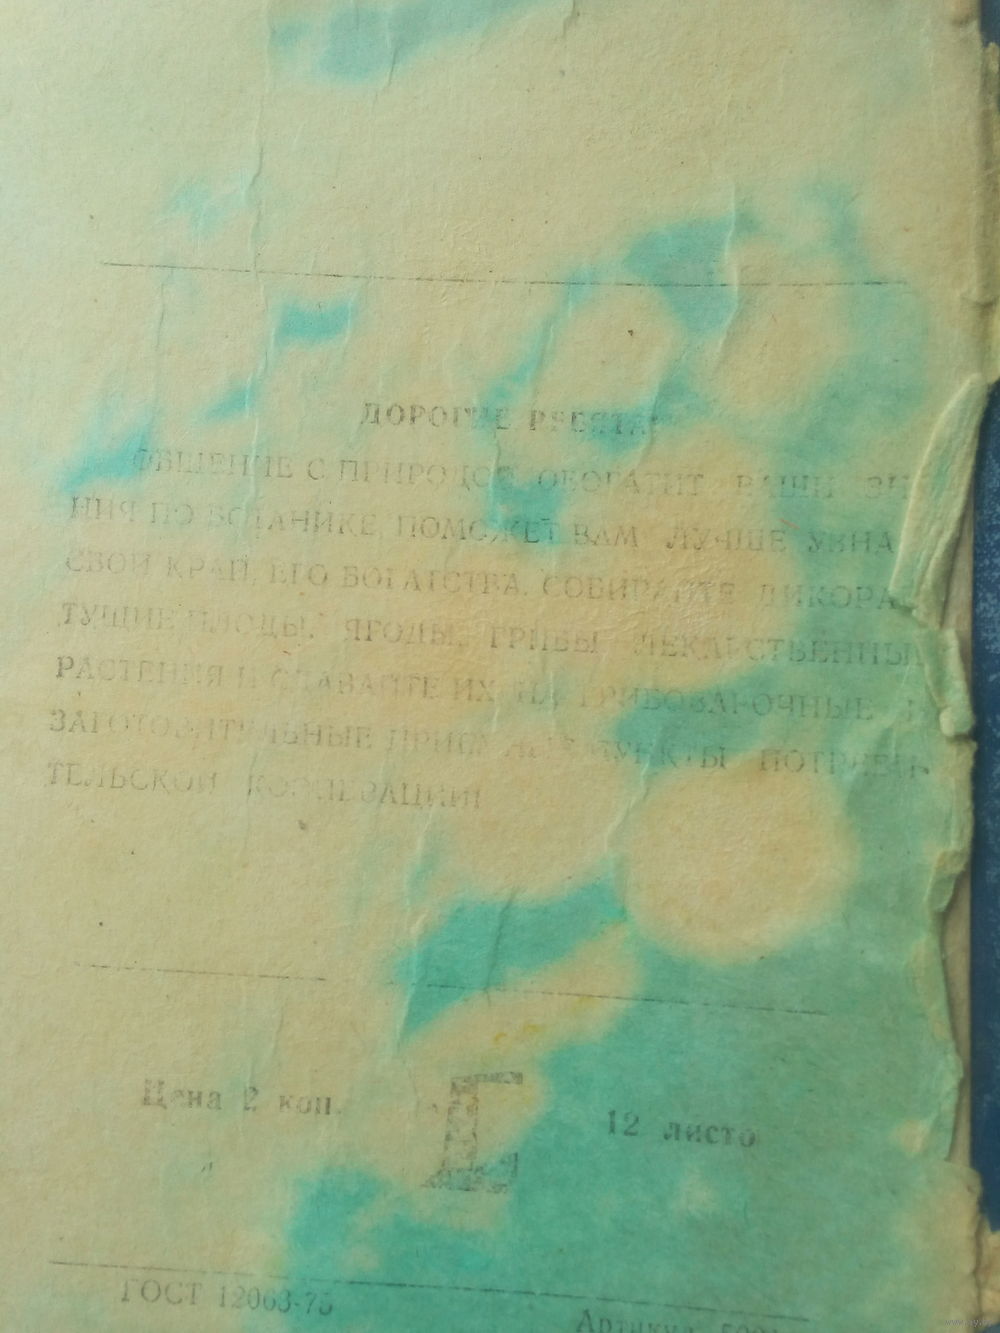 ДОРОГИЕ РЕБЯТА!
ОБЩЕНИЕ С ПРИРОДОЙ ОБОГАТИТ ВАШИ ЗН
НИЯ ПО БОТАНИКЕ, ПОМОЖЕТ ВАМ ЛУЧШЕ УЗНА
СВОЙ КРАЙ, ЕГО БОГАТСТВА. СОБИРАЙТЕ ДИКОРА
ТУЩИЕ ПЛОДЫ, ЯГОДЫ, ГРИБЫ ЛЕКАРСТВЕННЫЕ
РАСТЕНИЯ И СДАВАЙТЕ ИХ НА ГРИБОВАРОЧНЫЕ И
ЗАГОТОВИТЕЛЬНЫЕ ПРИЕМНЫЕ ПУНКТЫ ПОТРЕБИ-
ТЕЛЬСКОЙ КООПЕРАЦИИ!
Цена 2 коп. 12 листо
ГОСТ 12063-75
Артикул